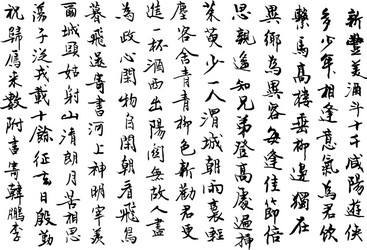 新豐美酒斗十千咸陽遊俠
多少年相逢意氣為君飲
繫馬高樓垂柳邊獨在
異鄉為異客每逢佳節倍
思親遙知兄弟登高處遍插
茱萸少一人渭城朝雨裛輕
塵客舍青青柳色新勸君更
進一杯酒西出陽關無故人
為政心閑物自閑朝看飛鳥
暮飛還寄書河上神明宰羨
爾城頭姑射山清朗月苦相思
蕩子從戎載十餘征去日殷勤
祝歸鴈來數附書寄韓鵬李